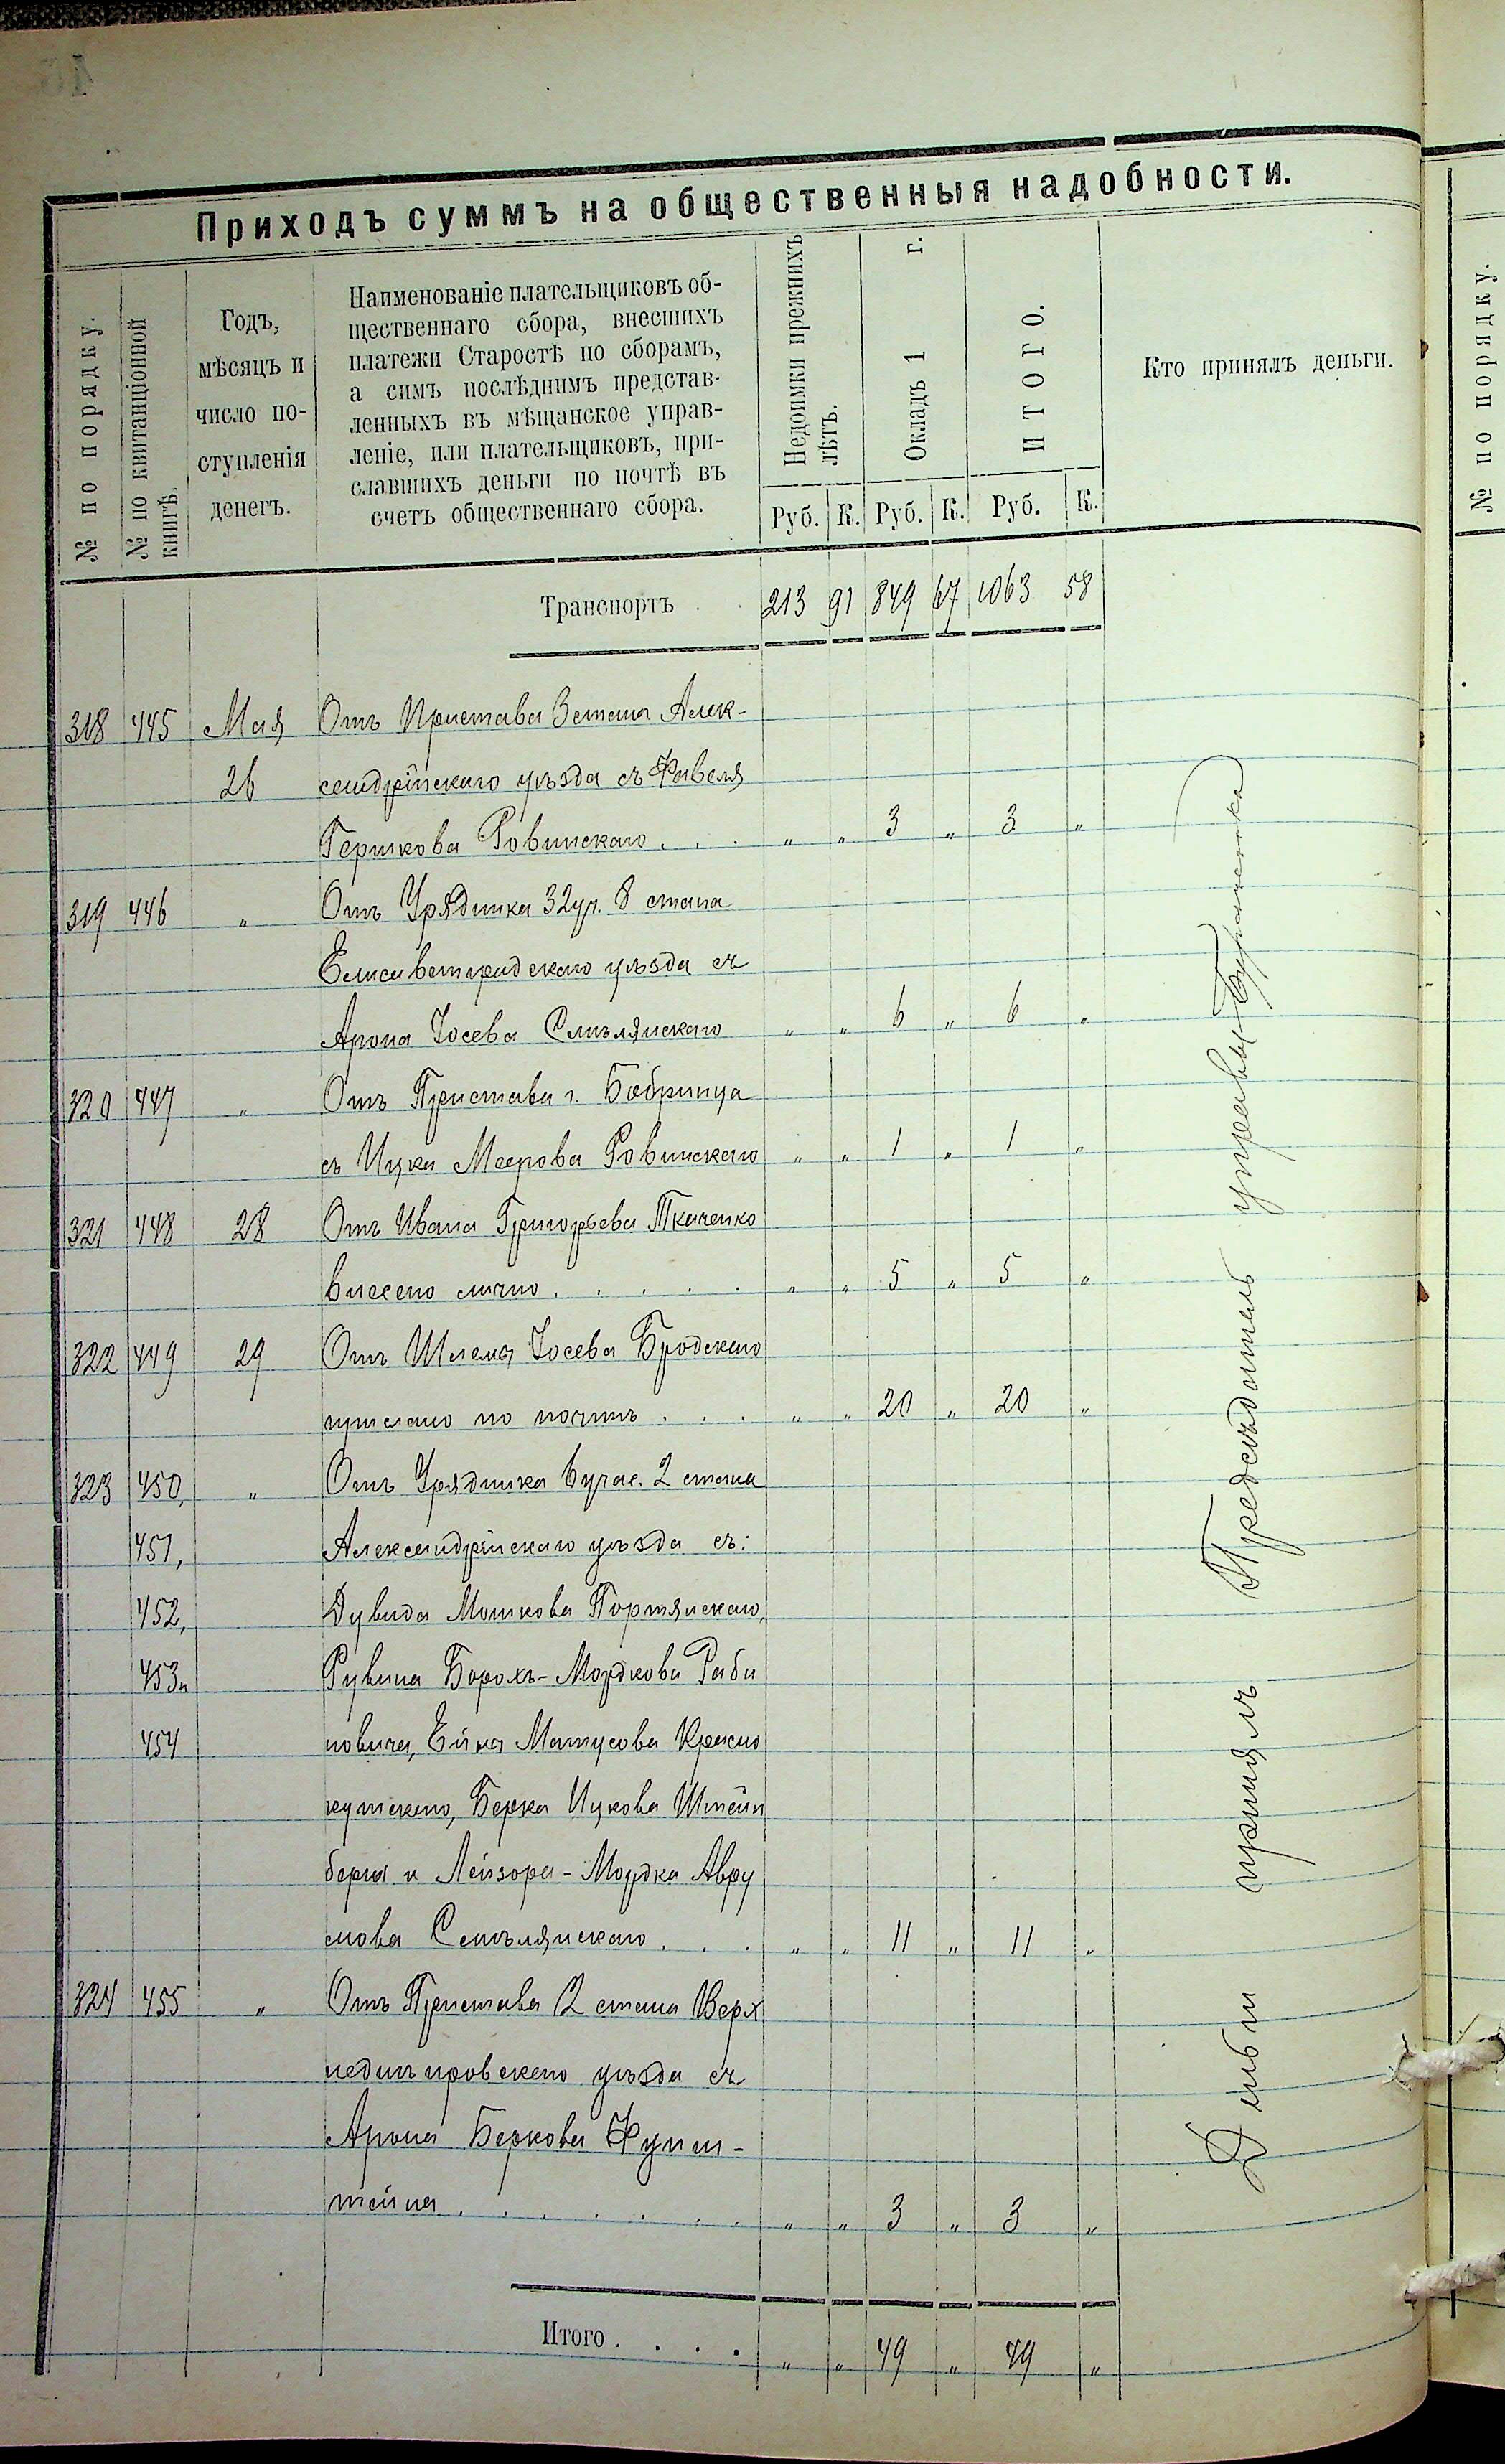 Приходъ суммъ на общественныя надобности.
№ по порядку.
№ по квитанціонной
книгѣ.
Годъ,
мѣсяцъ и
число по-
ступленія
денегъ.
Наименованіе плательщиковъ об-
щественнаго сбора, внесшихъ
платежи Старостѣ по сборамъ,
а симъ послѣднимъ представ-
ленныхъ въ мѣщанское управ-
леніе, или плательщиковъ, при-
славшихъ деньги по почтѣ въ
счетъ общественнаго сбора.
Недоимки прежнихъ
лѣтъ.
Окладъ 1 г.
ИТОГО.
Кто принялъ деньги.
Руб. К. Руб. К. Руб. К.
Транспортъ 213 91 849 67 1063 58
318 445 Мая Отъ Пристава 3 стана Алек-
26 сандрійскаго уѣзда съ Фавеля
Гершкова Ровинскаго . . . " " 3 " 3 "
319 446 " Отъ Урядника 32 уч. 8 стана
Елисаветградскаго уѣзда съ
Арона Іосева Смѣлянскаго " " 6 " 6 "
320 447 " Отъ Пристава г. Бобринца
съ Ицка Меерова Ровинскаго " " 1 " 1 "
321 448 28 Отъ Ивана Григорьева Ткаченко
внесено лично . . . . . " " 5 " 5 "
322 449 29 Отъ Шлема Іосева Бродскаго
прислано по почтѣ . . . " " 20 " 20 "
323 450, " Отъ Урядника 6 учас. 2 стана
451, Александрійскаго уѣзда съ:
452, Дувида Мошкова Портянскаго,
453 и Рувина Борохъ-Мордкова Раби
454 новича, Ейна Матусова Красно
кутскаго, Берка Ицкова Штейн
берга и Лейзора-Мордка Авру
мова Смѣлянскаго . . . " " 11 " 11 "
324 455 " Отъ Пристава 2 стана Верх
недиѣпровскаго уѣзда съ
Арона Беркова Функ-
тейна . . . . . . . " " 3 " 3 "
Итого . . . . " " 49 " 49 "
Деньги принялъ Предсѣдатель управы
№ по порядку.